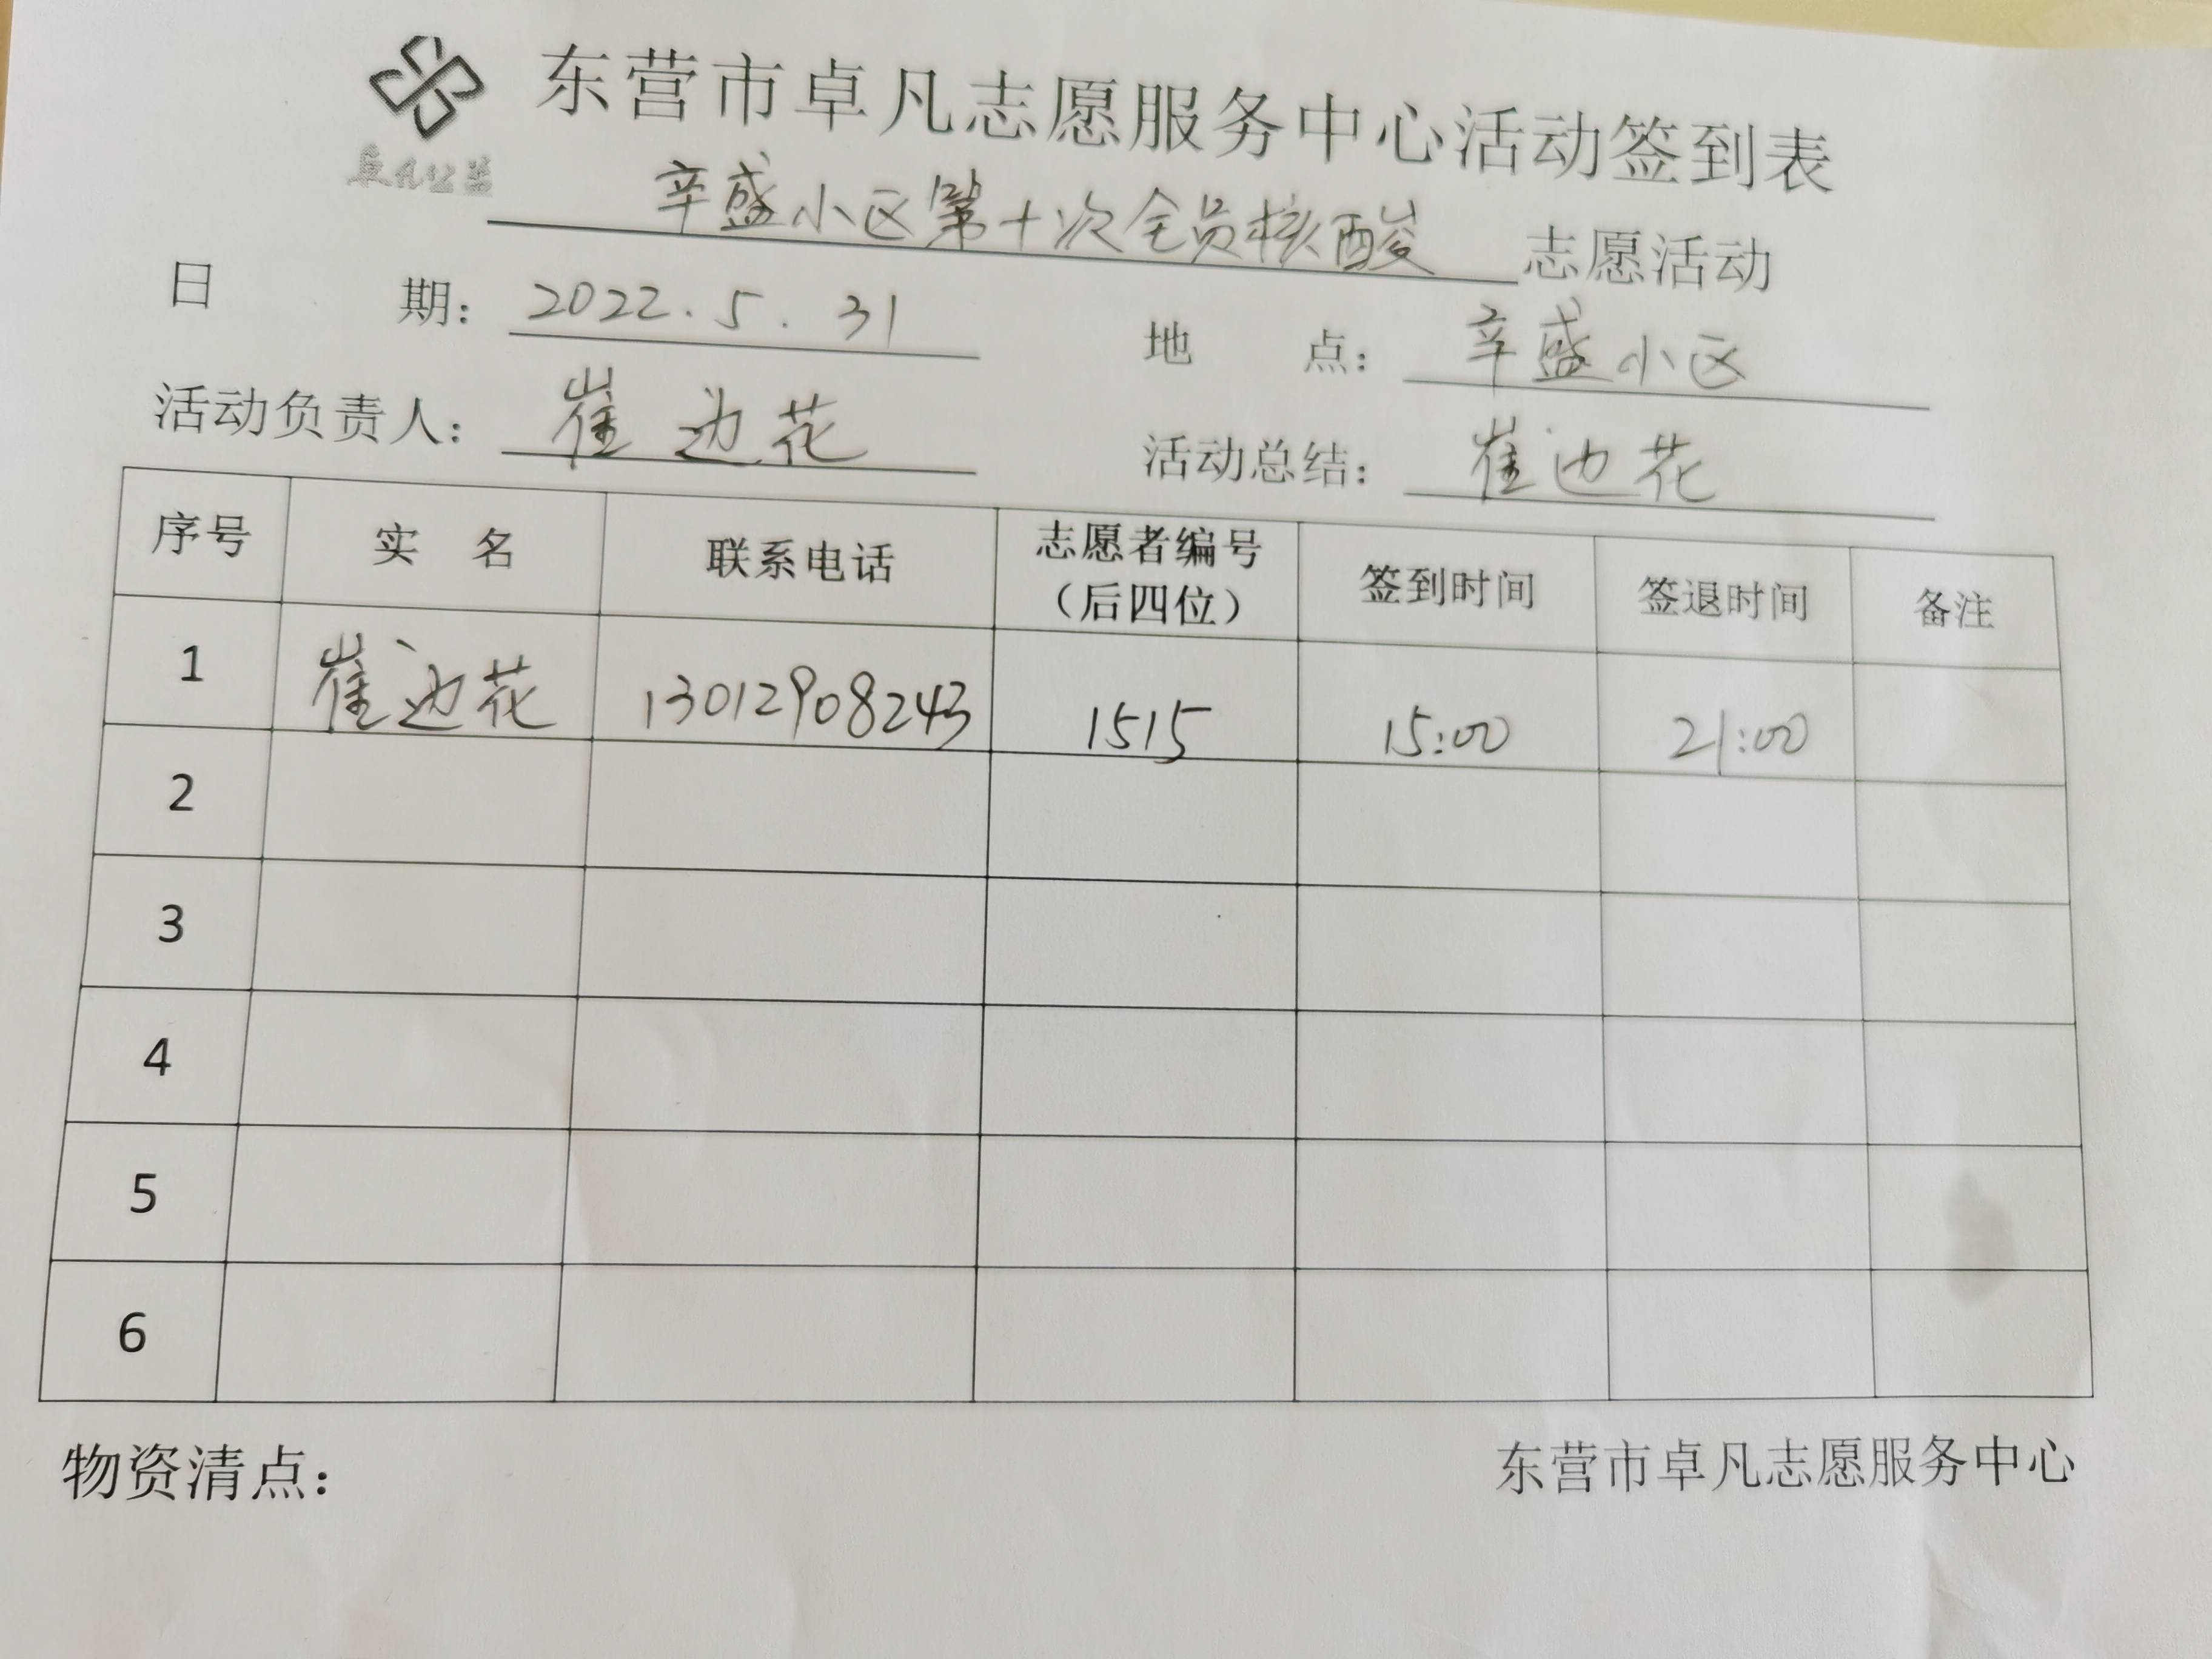 东营市卓凡志愿服务中心活动签到表
卓凡公益
辛盛小区第十次全员核酸 志愿活动
日 期: 2022.5.31 地 点: 辛盛小区
活动负责人: 崔边花 活动总结: 崔边花
序号 实 名 联系电话 志愿者编号(后四位) 签到时间 签退时间 备注
1 崔边花 13012908243 1515 15:00 21:00
2
3
4
5
6
物资清点: 东营市卓凡志愿服务中心